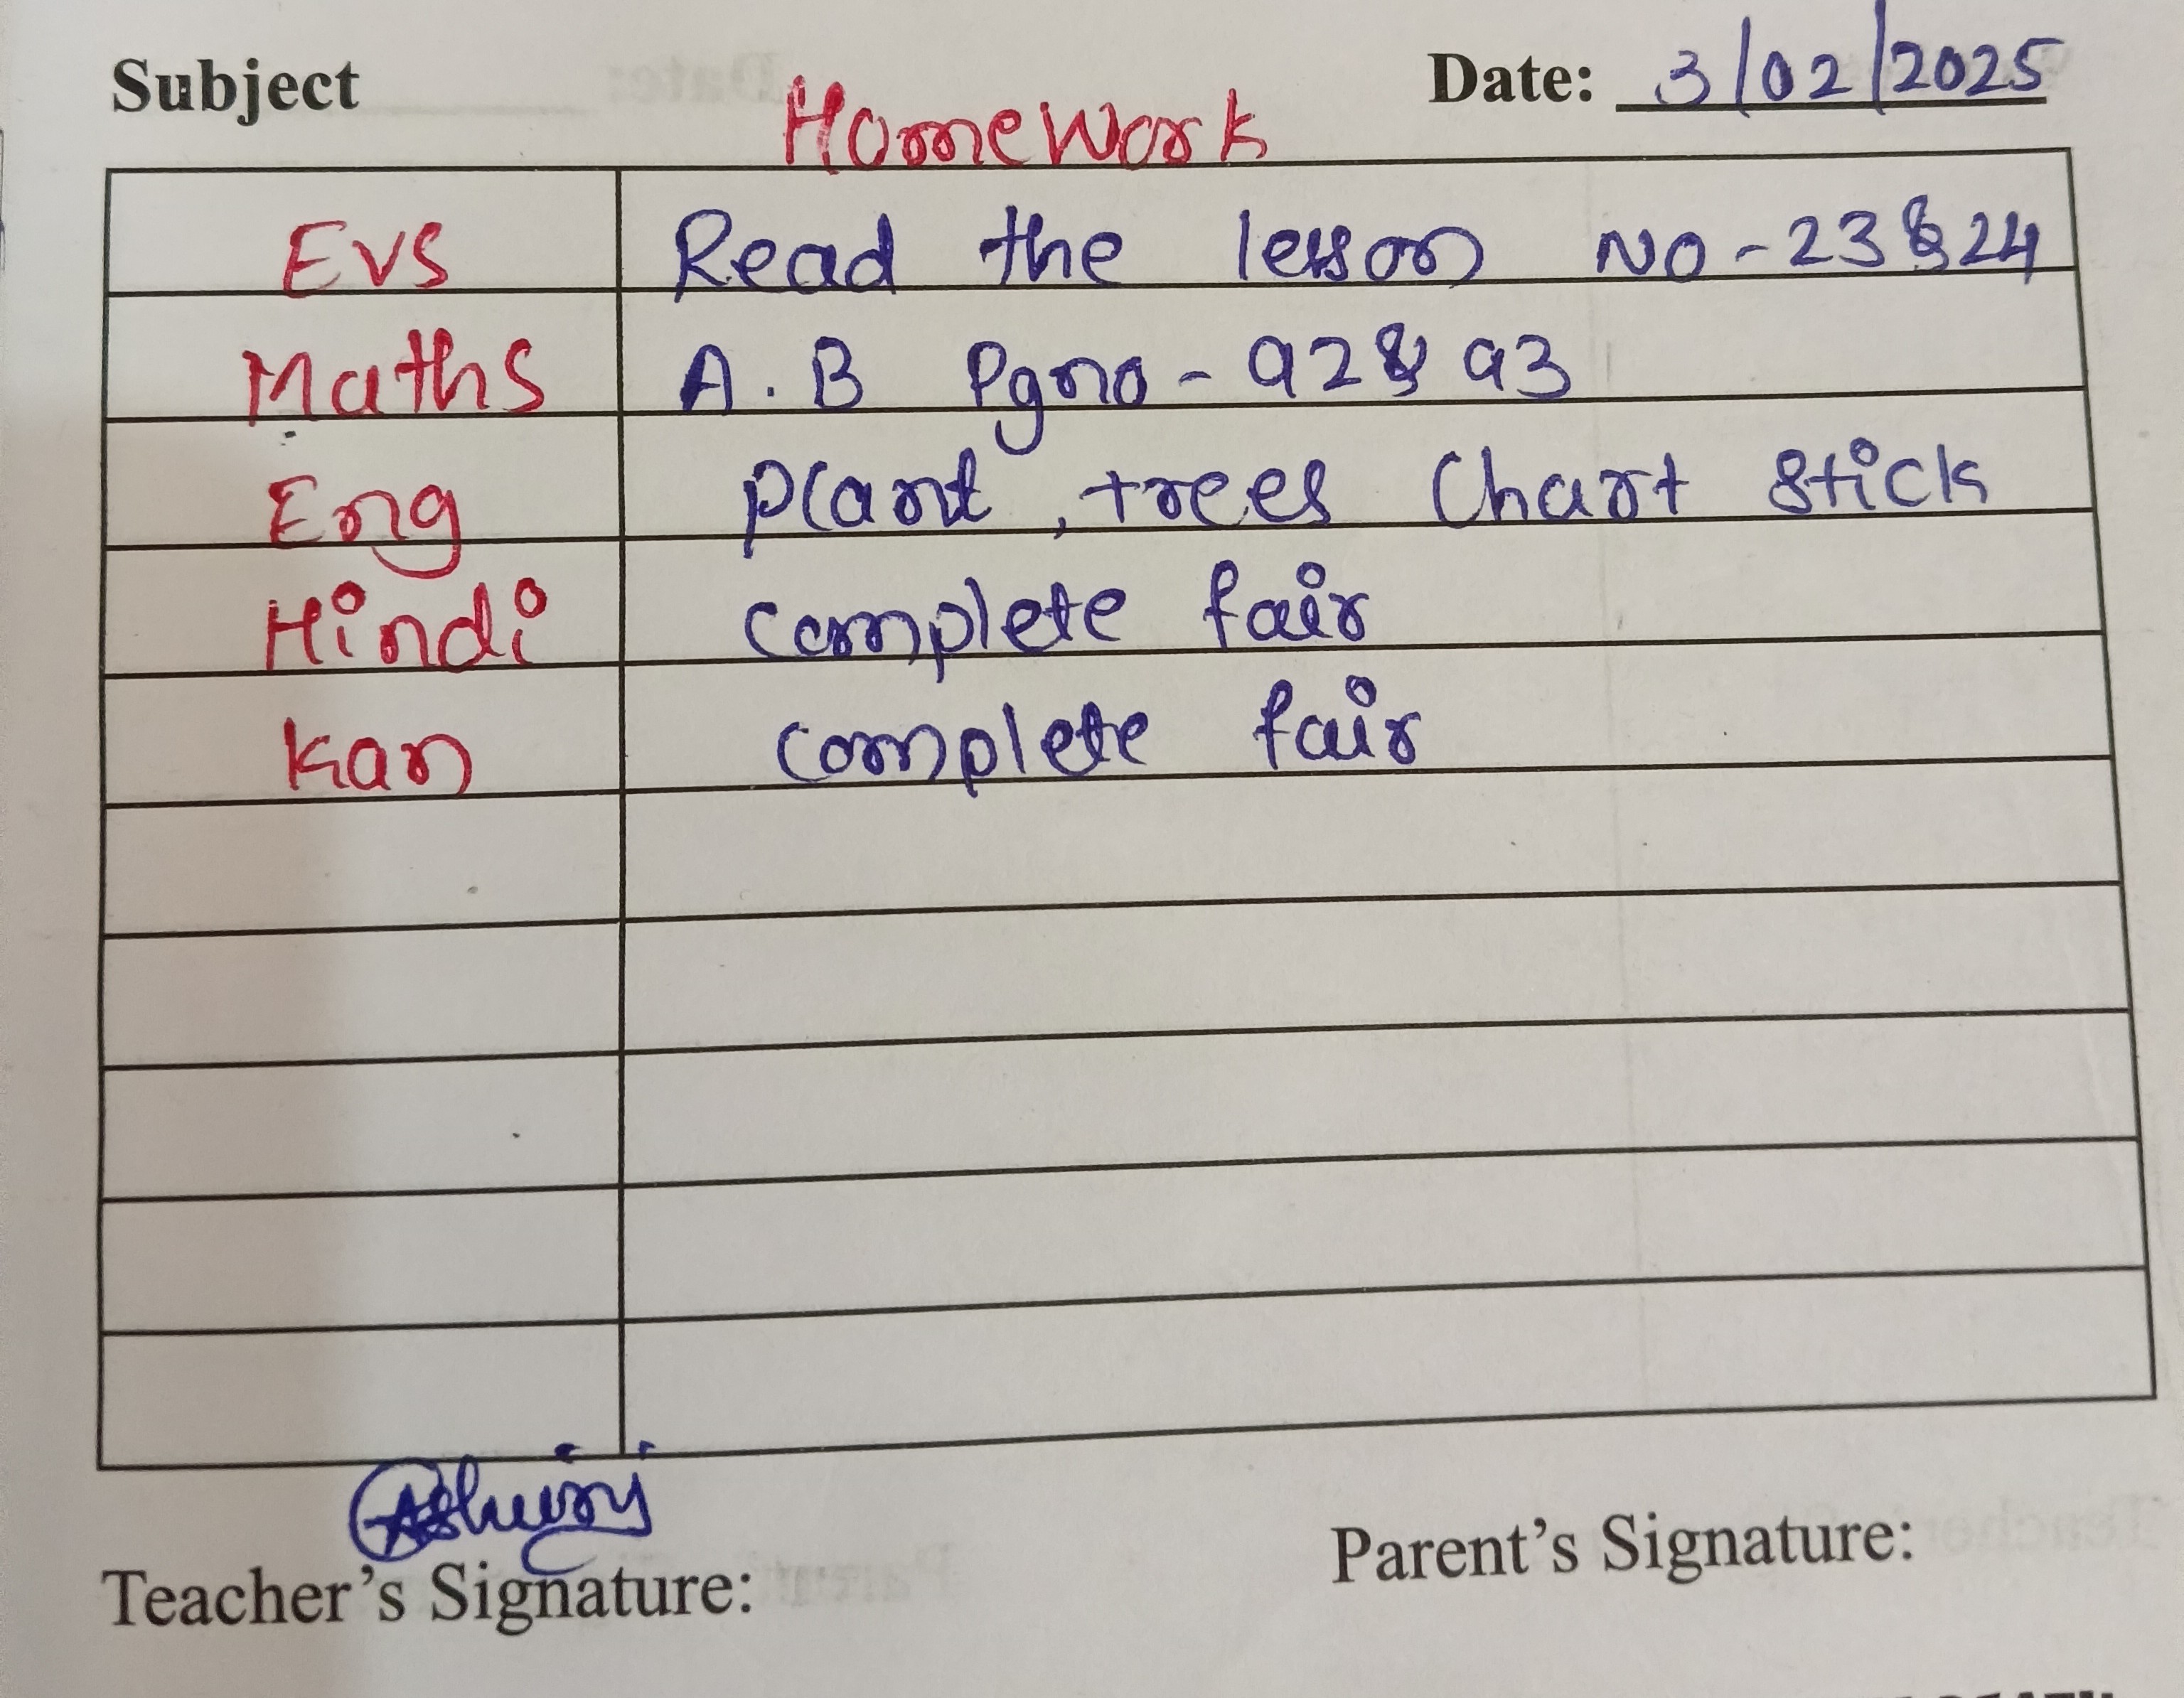 Subject
Date: 3/02/2025
HomeWork
Evs Read the lesson No-23 & 24
Maths A.B Pgno- 92 & 93
Eng Plant, trees Chart stick
Hindi complete fair
Kan complete fair
Teacher's Signature:
Parent's Signature: